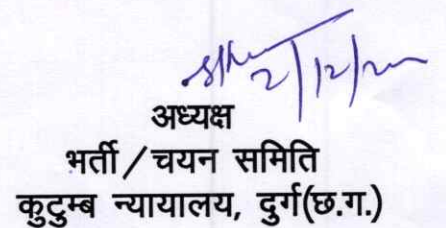 2/12/20
अध्यक्ष
भर्ती/चयन समिति
कुटुम्ब न्यायालय, दुर्ग(छ.ग.)